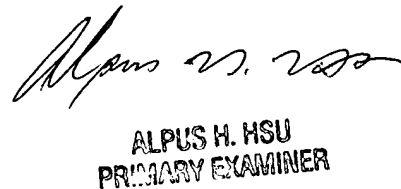 Alpus H. Hsu
ALPUS H. HSU
PRIMARY EXAMINER